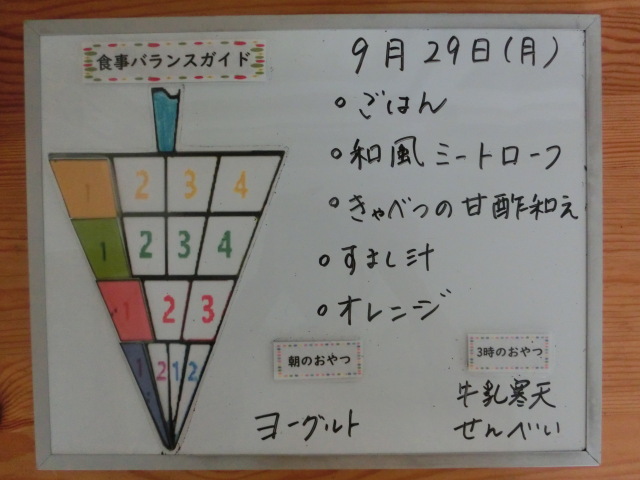 食事バランスガイド
1 2 3 4
1 2 3 4
1 2 3
1 2 1 2
9月29日(月)
○ごはん
○和風ミートローフ
○きゃべつの甘酢和え
○すまし汁
○オレンジ
朝のおやつ
ヨーグルト
3時のおやつ
牛乳寒天
せんべい